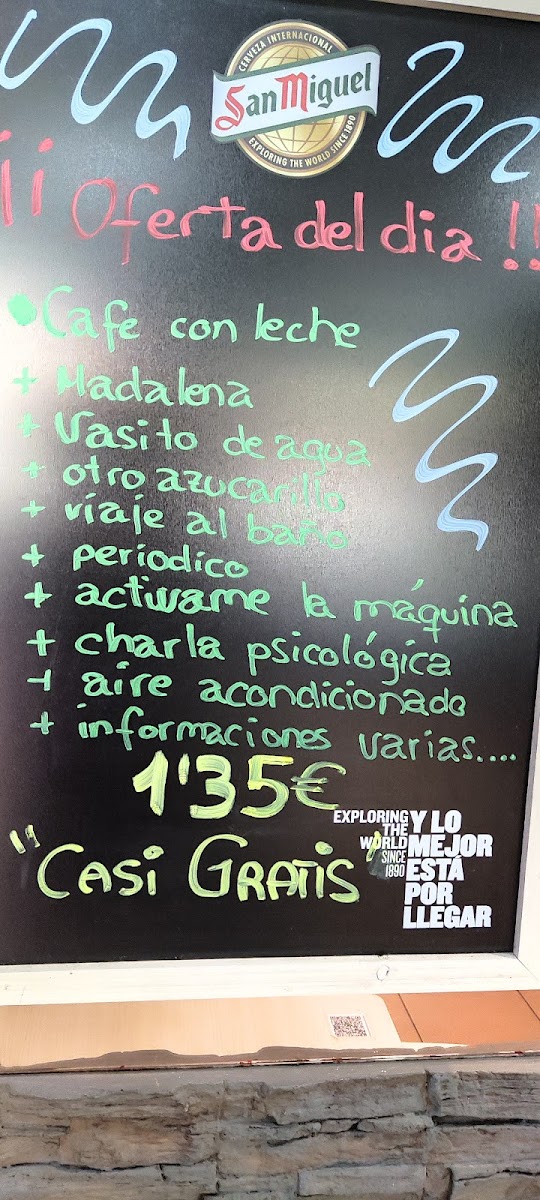 CERVEZA INTERNACIONAL
San Miguel
EXPLORING THE WORLD SINCE 1890
¡¡ Oferta del dia !!
• Cafe con leche
+ Madalena
+ Vasito de agua
+ otro azucarillo
+ viaje al baño
+ periodico
+ activame la máquina
+ charla psicológica
+ aire acondicionado
+ informaciones varias....
1'35€
"CASi GRATIS"
EXPLORING
THE
WORLD
SINCE
1890
Y LO
MEJOR
ESTÁ
POR
LLEGAR